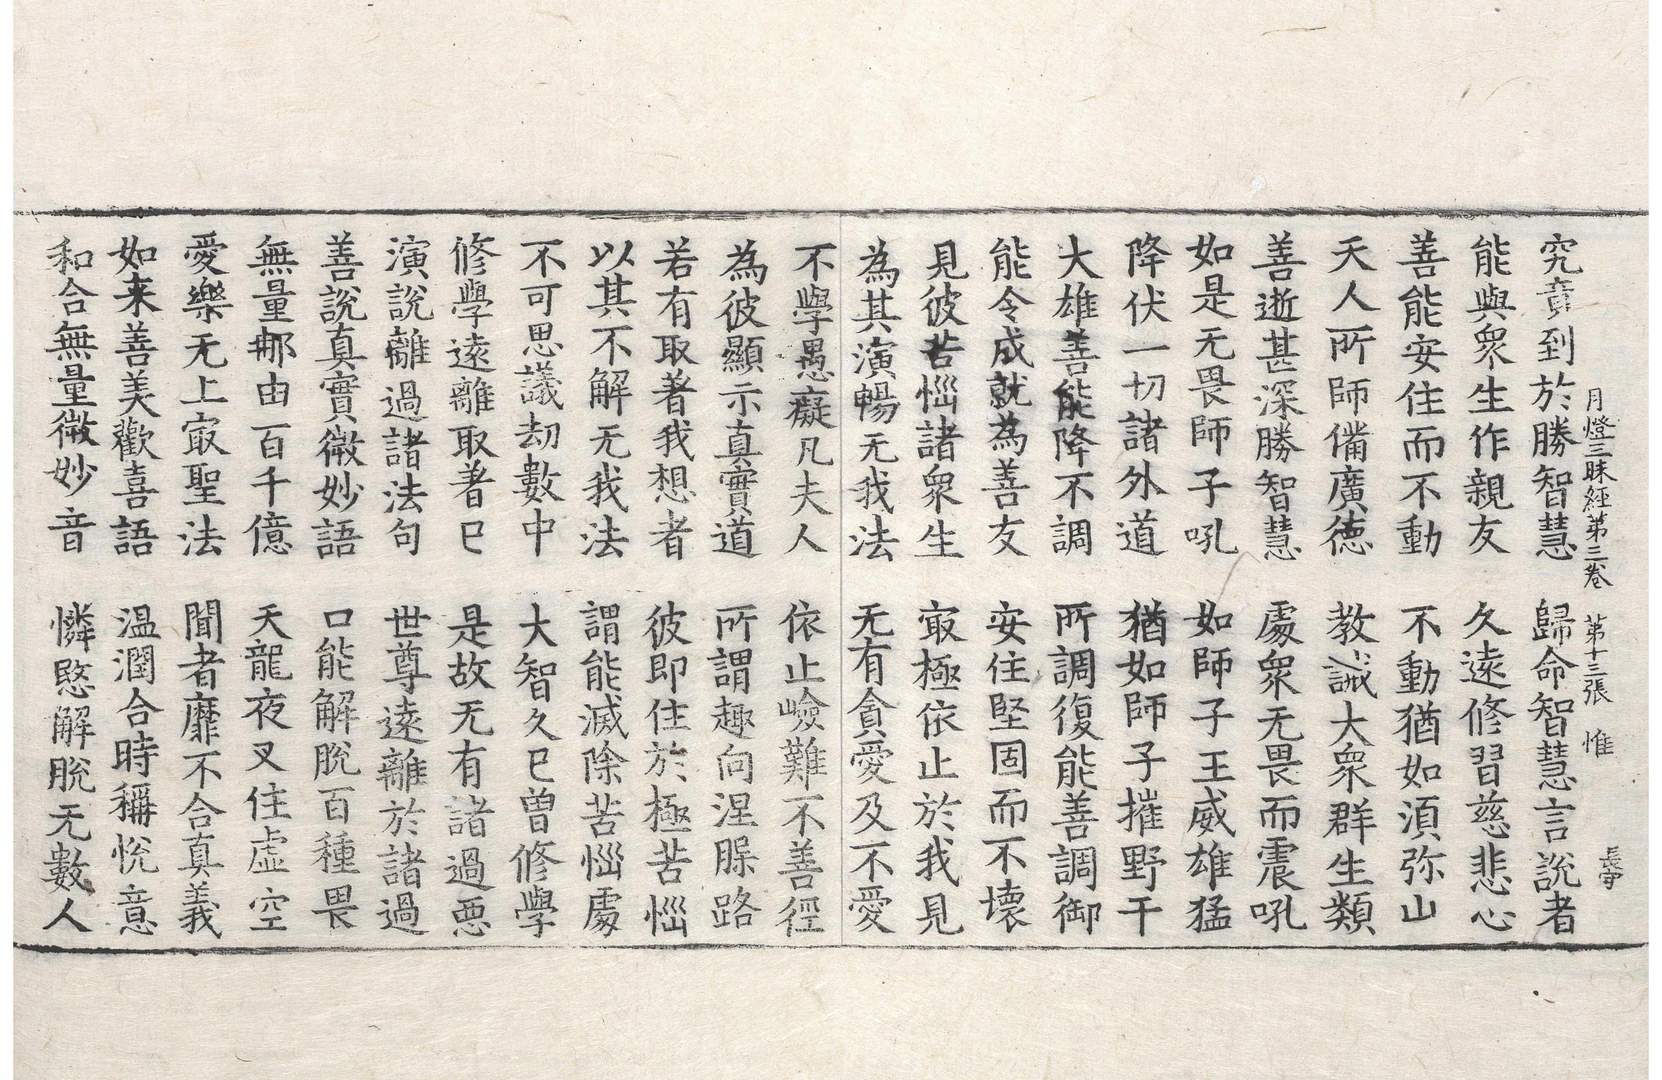 月燈三昧經第三卷 第十三張 惟
究竟到於勝智慧 歸命智慧言說者
能與衆生作親友 久遠修習慈悲心
善能安住而不動 不動猶如湏弥山
天人所師備廣德 教誡大衆群生類
善逝甚深勝智慧 處衆无畏而震吼
如是无畏師子吼 如師子王威雄猛
降伏一切諸外道 猶如師子摧野干
大雄善能降不調 所調復能善調御
能令成就為善友 安住堅固而不壞
見彼苦惱諸衆生 㝡極依止於我見
為其演暢无我法 无有貪愛及不愛
不學愚癡凡夫人 依止嶮難不善徑
為彼顯示真實道 所謂趣向涅槃路
若有取著我想者 彼即住於極苦惱
以其不解无我法 謂能滅除苦惱處
不可思議劫數中 大智久已曾修學
修學遠離取著已 是故无有諸過惡
演說離過諸法句 世尊遠離於諸過
善說真實微妙語 口能解脫百種畏
無量那由百千億 天龍夜叉住虛空
愛樂无上㝡聖法 聞者靡不合真義
如来善美歡喜語 温潤合時稱悅意
和合無量微妙音 憐愍解脫无數人